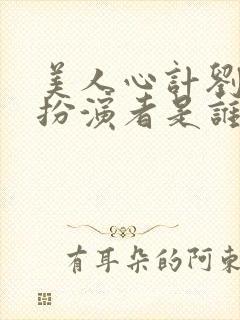 美人心計劉
扮演者是誰
有耳朵的阿東